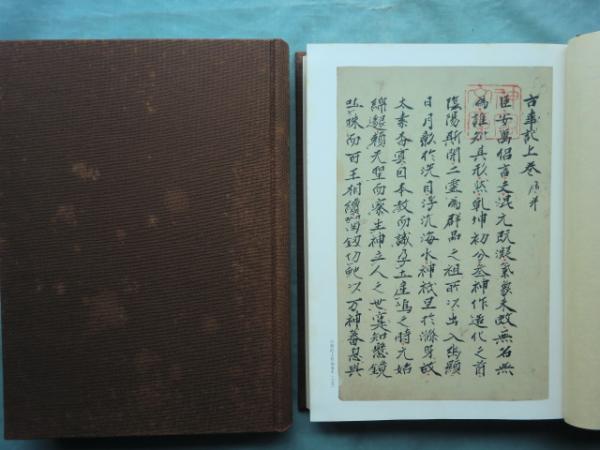 古事記上巻 序并
臣安萬侶言夫混元既凝氣象未效無名無
為誰知其形然乾坤初分叅神作造化之首
陰陽斯開二霊為群品之祖所以出入幽顕
日月彰於洗目浮沉海水神祇呈於滌身故
太素杳冥因本教而識孕土産嶋之時元始
綿邈頼先聖而察生神立人之世寔知懸鏡
吐珠而百王相續喫釼切蛇以万神蕃息與